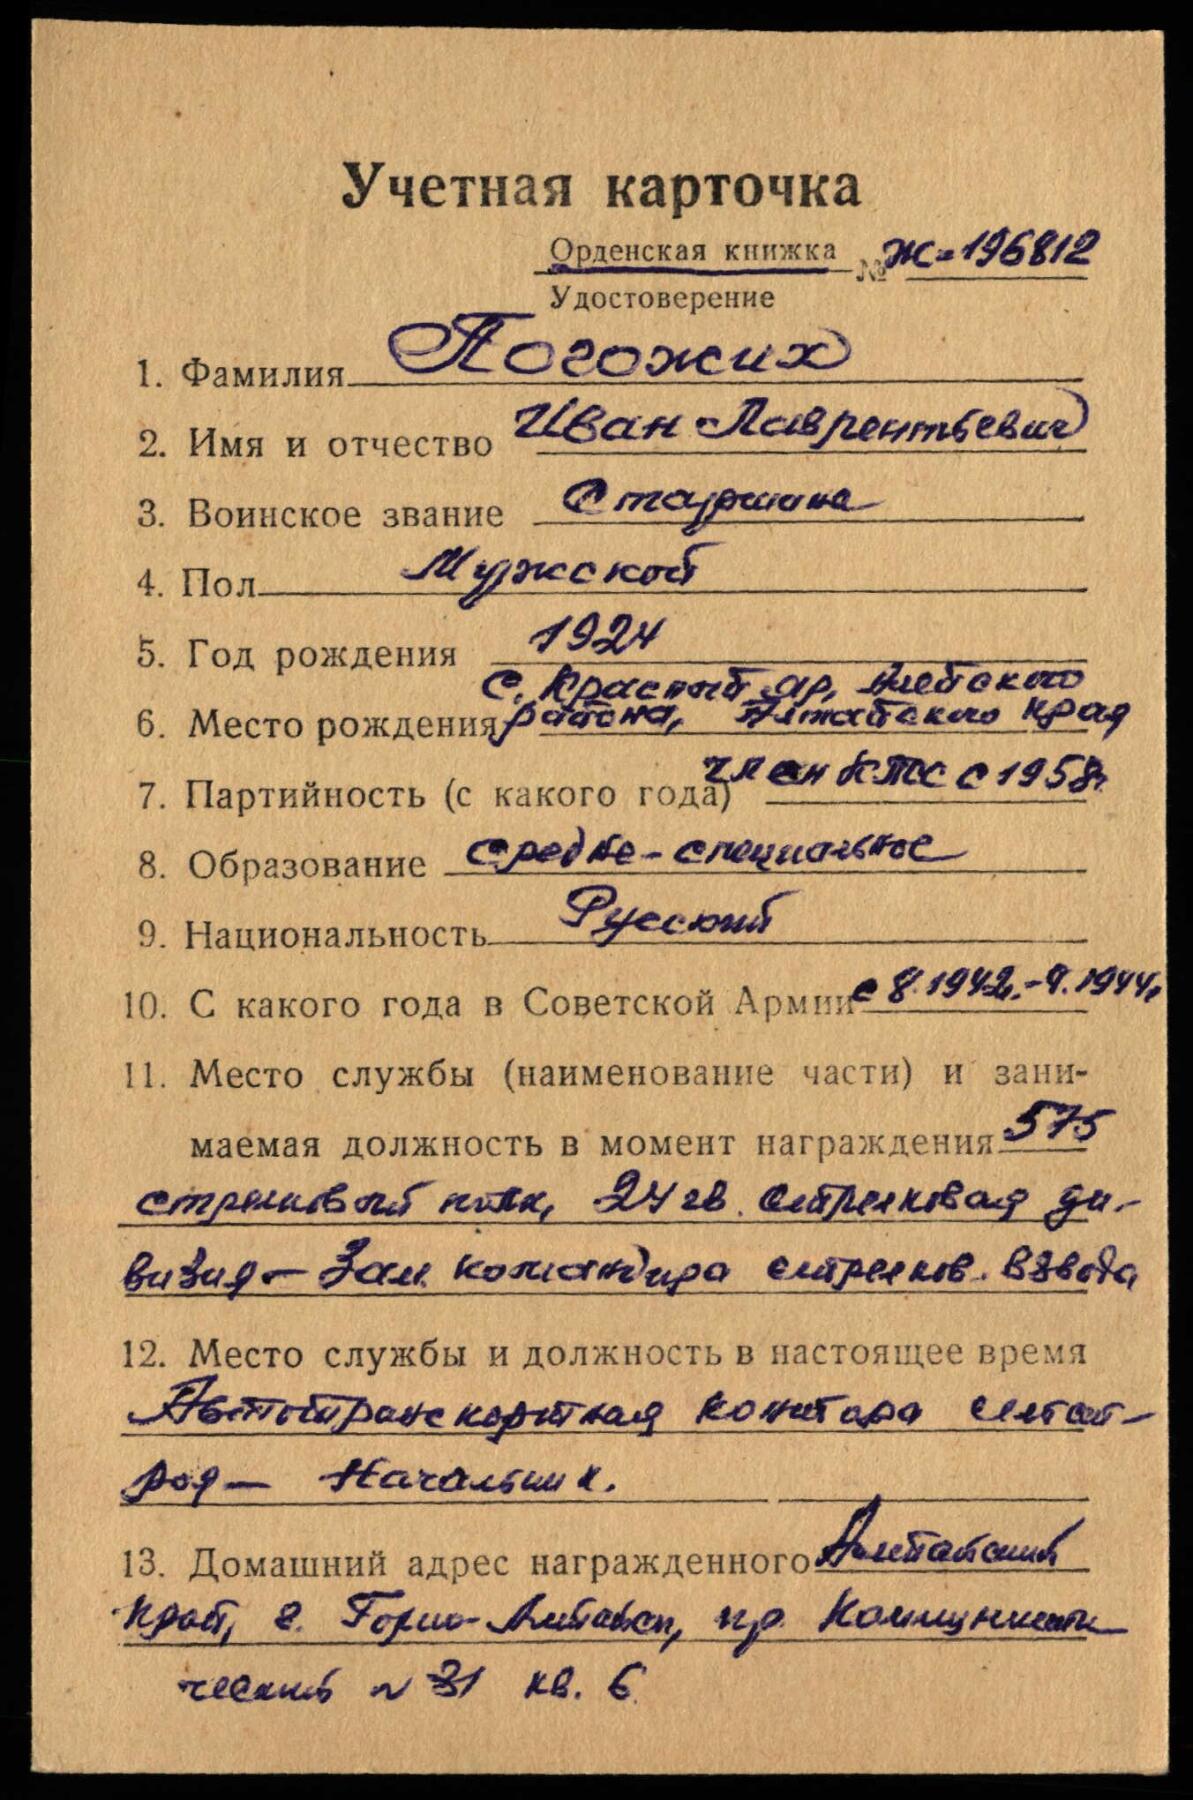 Учетная карточка
Орденская книжка № Ж-196812
Удостоверение
1. Фамилия Погожих
2. Имя и отчество Иван Лаврентьевич
3. Воинское звание Старшина
4. Пол Мужской
5. Год рождения 1924
с. Красный яр, Алейского
6. Место рождения района, Алтайского края
7. Партийность (с какого года) член КПСС с 1958г.
8. Образование средне-специальное
9. Национальность Русский
10. С какого года в Советской Армии с 8.1942г.-9.1944г.
11. Место службы (наименование части) и зани-
маемая должность в момент награждения 575
стрелковый полк, 24 гв. стрелковая ди-
визия - Зам. командира стрелков. взвода
12. Место службы и должность в настоящее время
Автотранспортная контора
- Начальник.
13. Домашний адрес награжденного Алтайский
край, г. Горно-Алтайск, пр. Коммунисти
ческий № 31 кв. 6